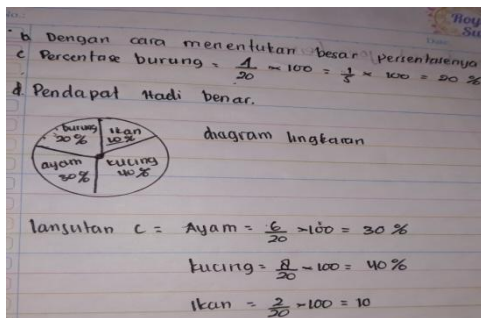 b Dengan cara menentukan besar persentasenya
c Percentase burung = 4/20 × 100 = 1/5 × 100 = 20 %
d Pendapat Hadi benar.
burung 20%
ikan 10%
ayam 30%
kucing 40%
diagram lingkaran
lansutan c = Ayam = 6/20 × 100 = 30 %
kucing = 8/20 × 100 = 40%
ikan = 2/20 × 100 = 10